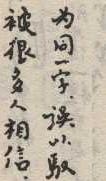 为同一字，误以致
被很多人相信．